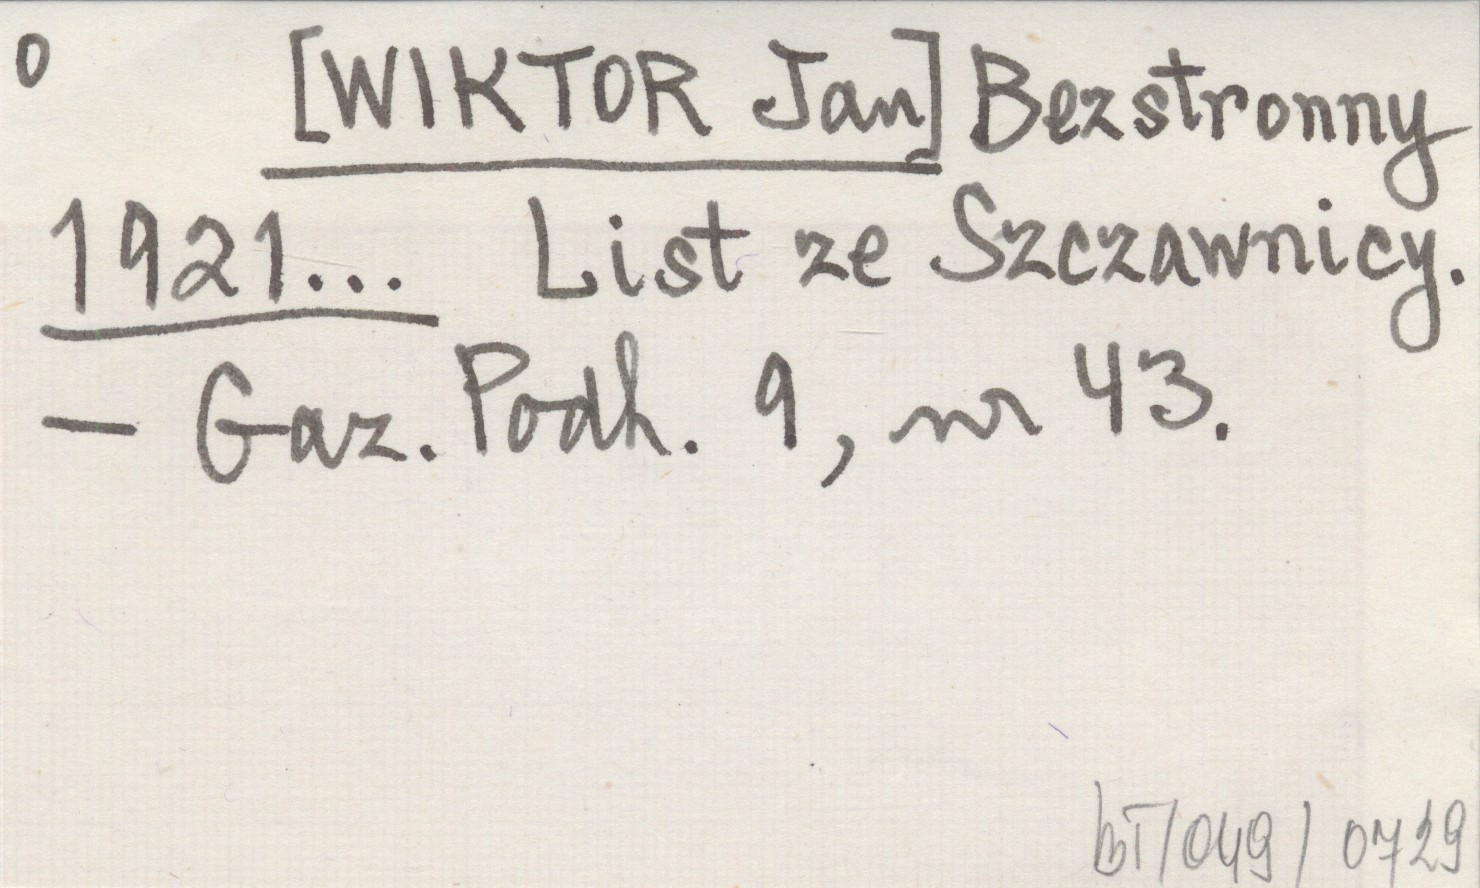 0 [WIKTOR Jan] Bezstronny
1921... List ze Szczawnicy.
— Gaz. Podh. 9, nr 43.
bT/049/0729